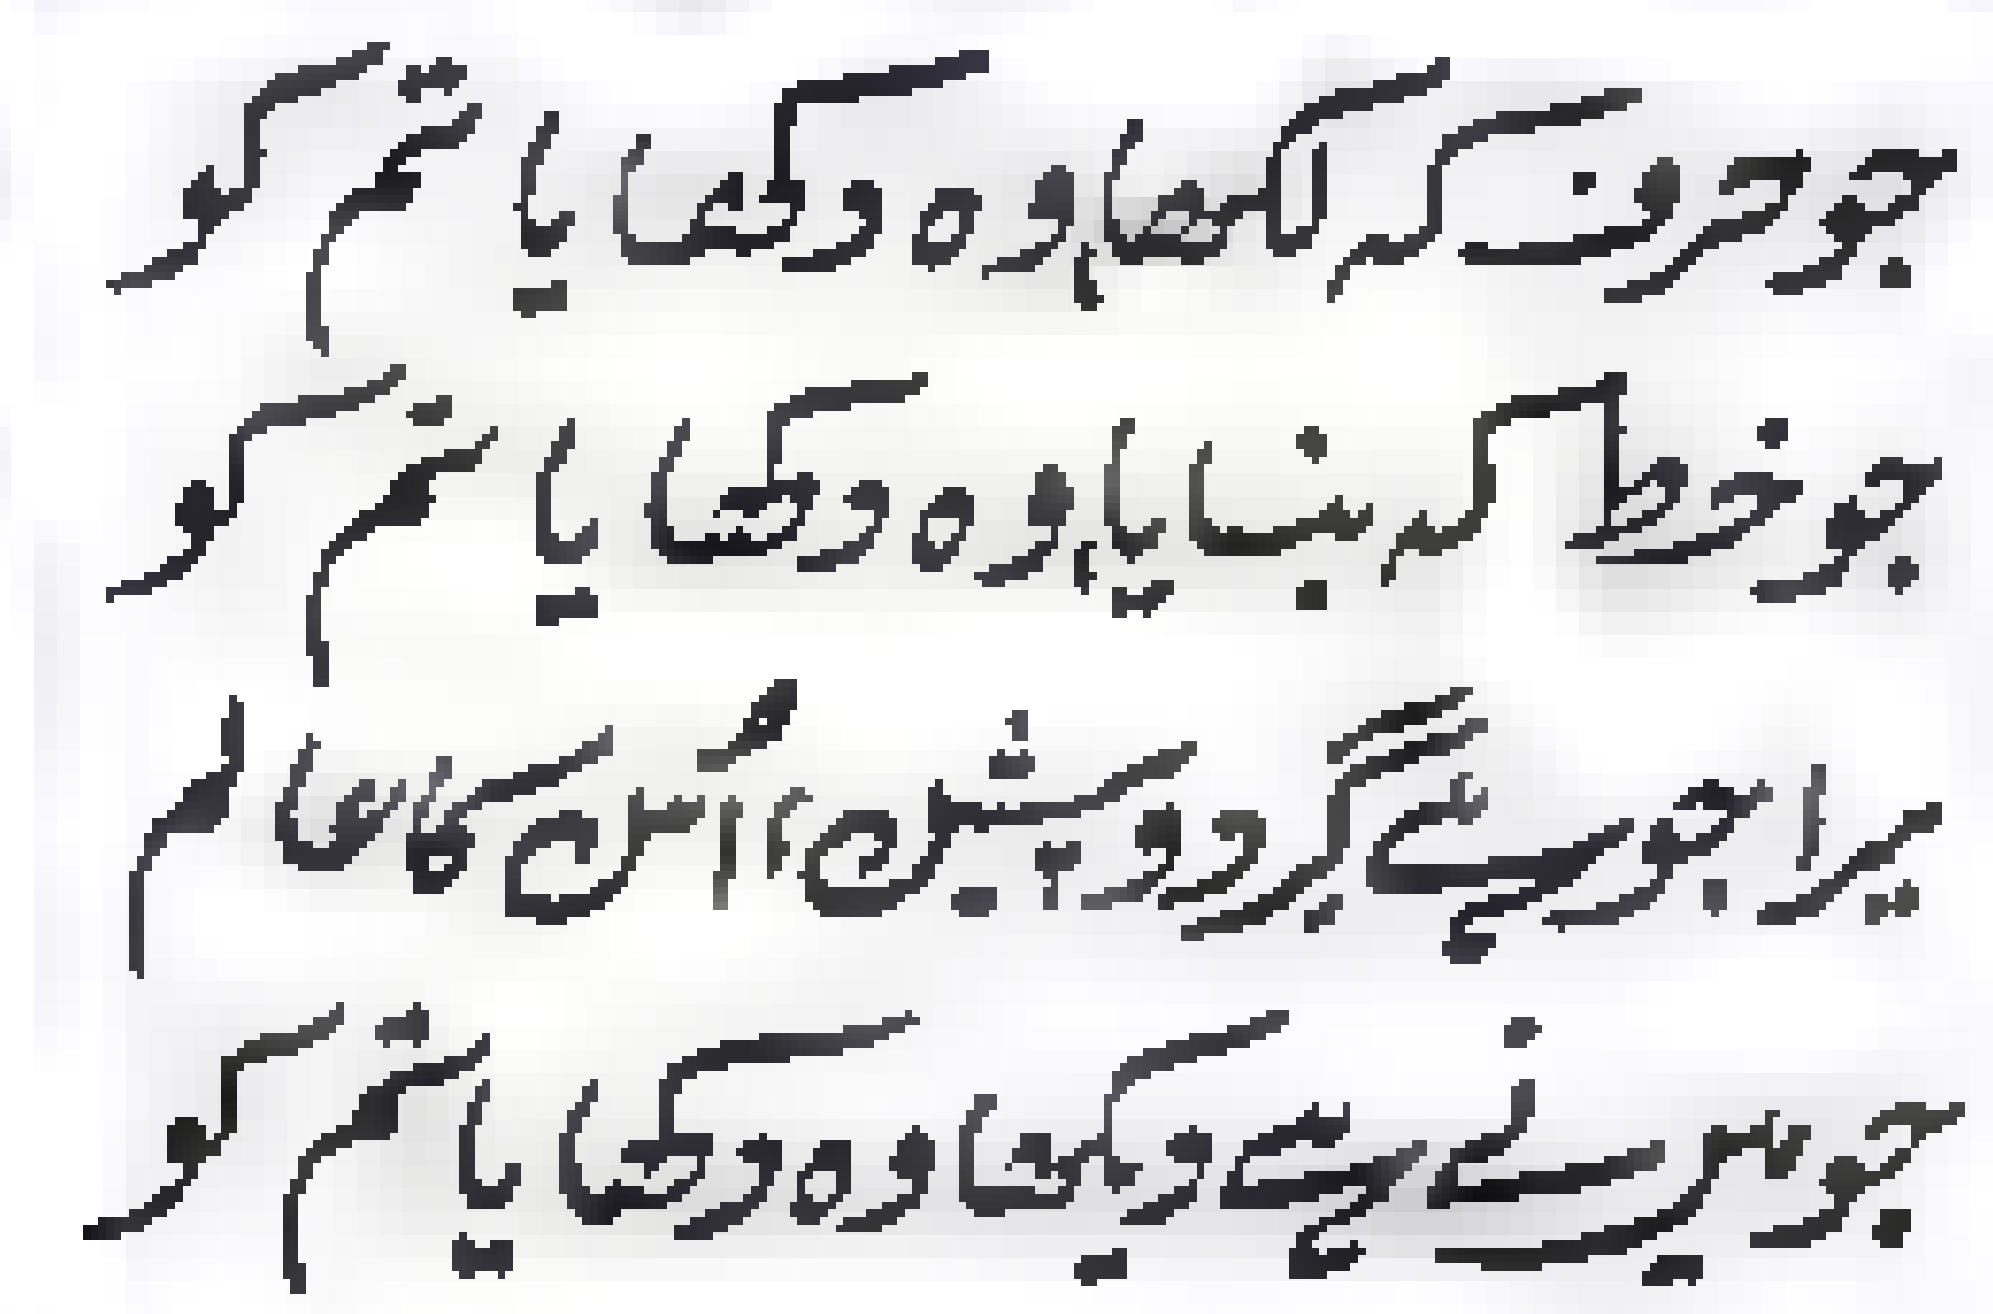 جو حرف کہ لکھا، وہ دکھایا تم کو
جو خط کہ بنایا، وہ دکھایا تم کو
میرا جو ہے گرد و پیش، اُس کا عالم
جو میں نے ہے دیکھا وہ دکھایا تم کو